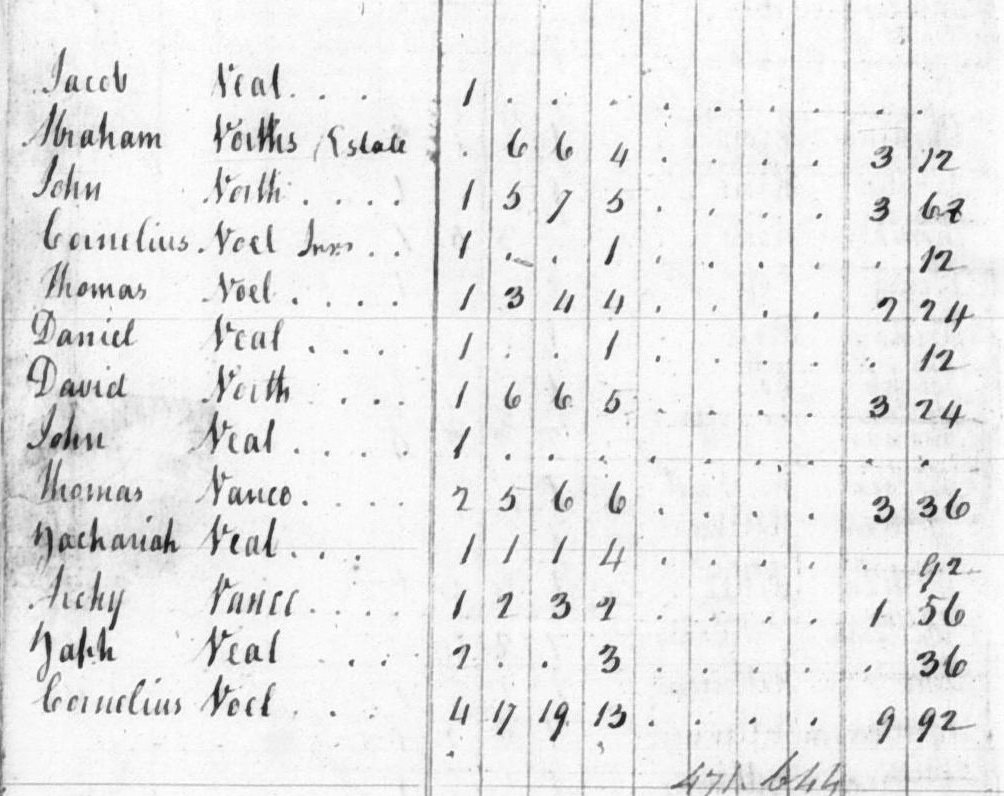 Jacob Neal . . . 1 . . . . . . . . .
Abraham Norths Estate . 6 6 4 . . . . 3 12
John North . . . . 1 5 7 5 . . . . 3 68
Cornelius Noel Junr . . 1 . . 1 . . . . . 12
Thomas Noel . . . . 1 3 4 4 . . . . 2 24
Daniel Neal . . . 1 . . 1 . . . . . 12
David North . . . 1 6 6 5 . . . . 3 24
John Neal . . . . 1 . . . . . . . . .
Thomas Nance . . . . 2 5 6 6 . . . . 3 36
Zachariah Neal . . . 1 1 1 4 . . . . . 92
Nance . . . . 1 2 3 2 . . . . 1 56
Neal . . . 2 . . 3 . . . . . 36
Cornelius Noel . . . 4 17 19 13 . . . . 9 92
471. 644